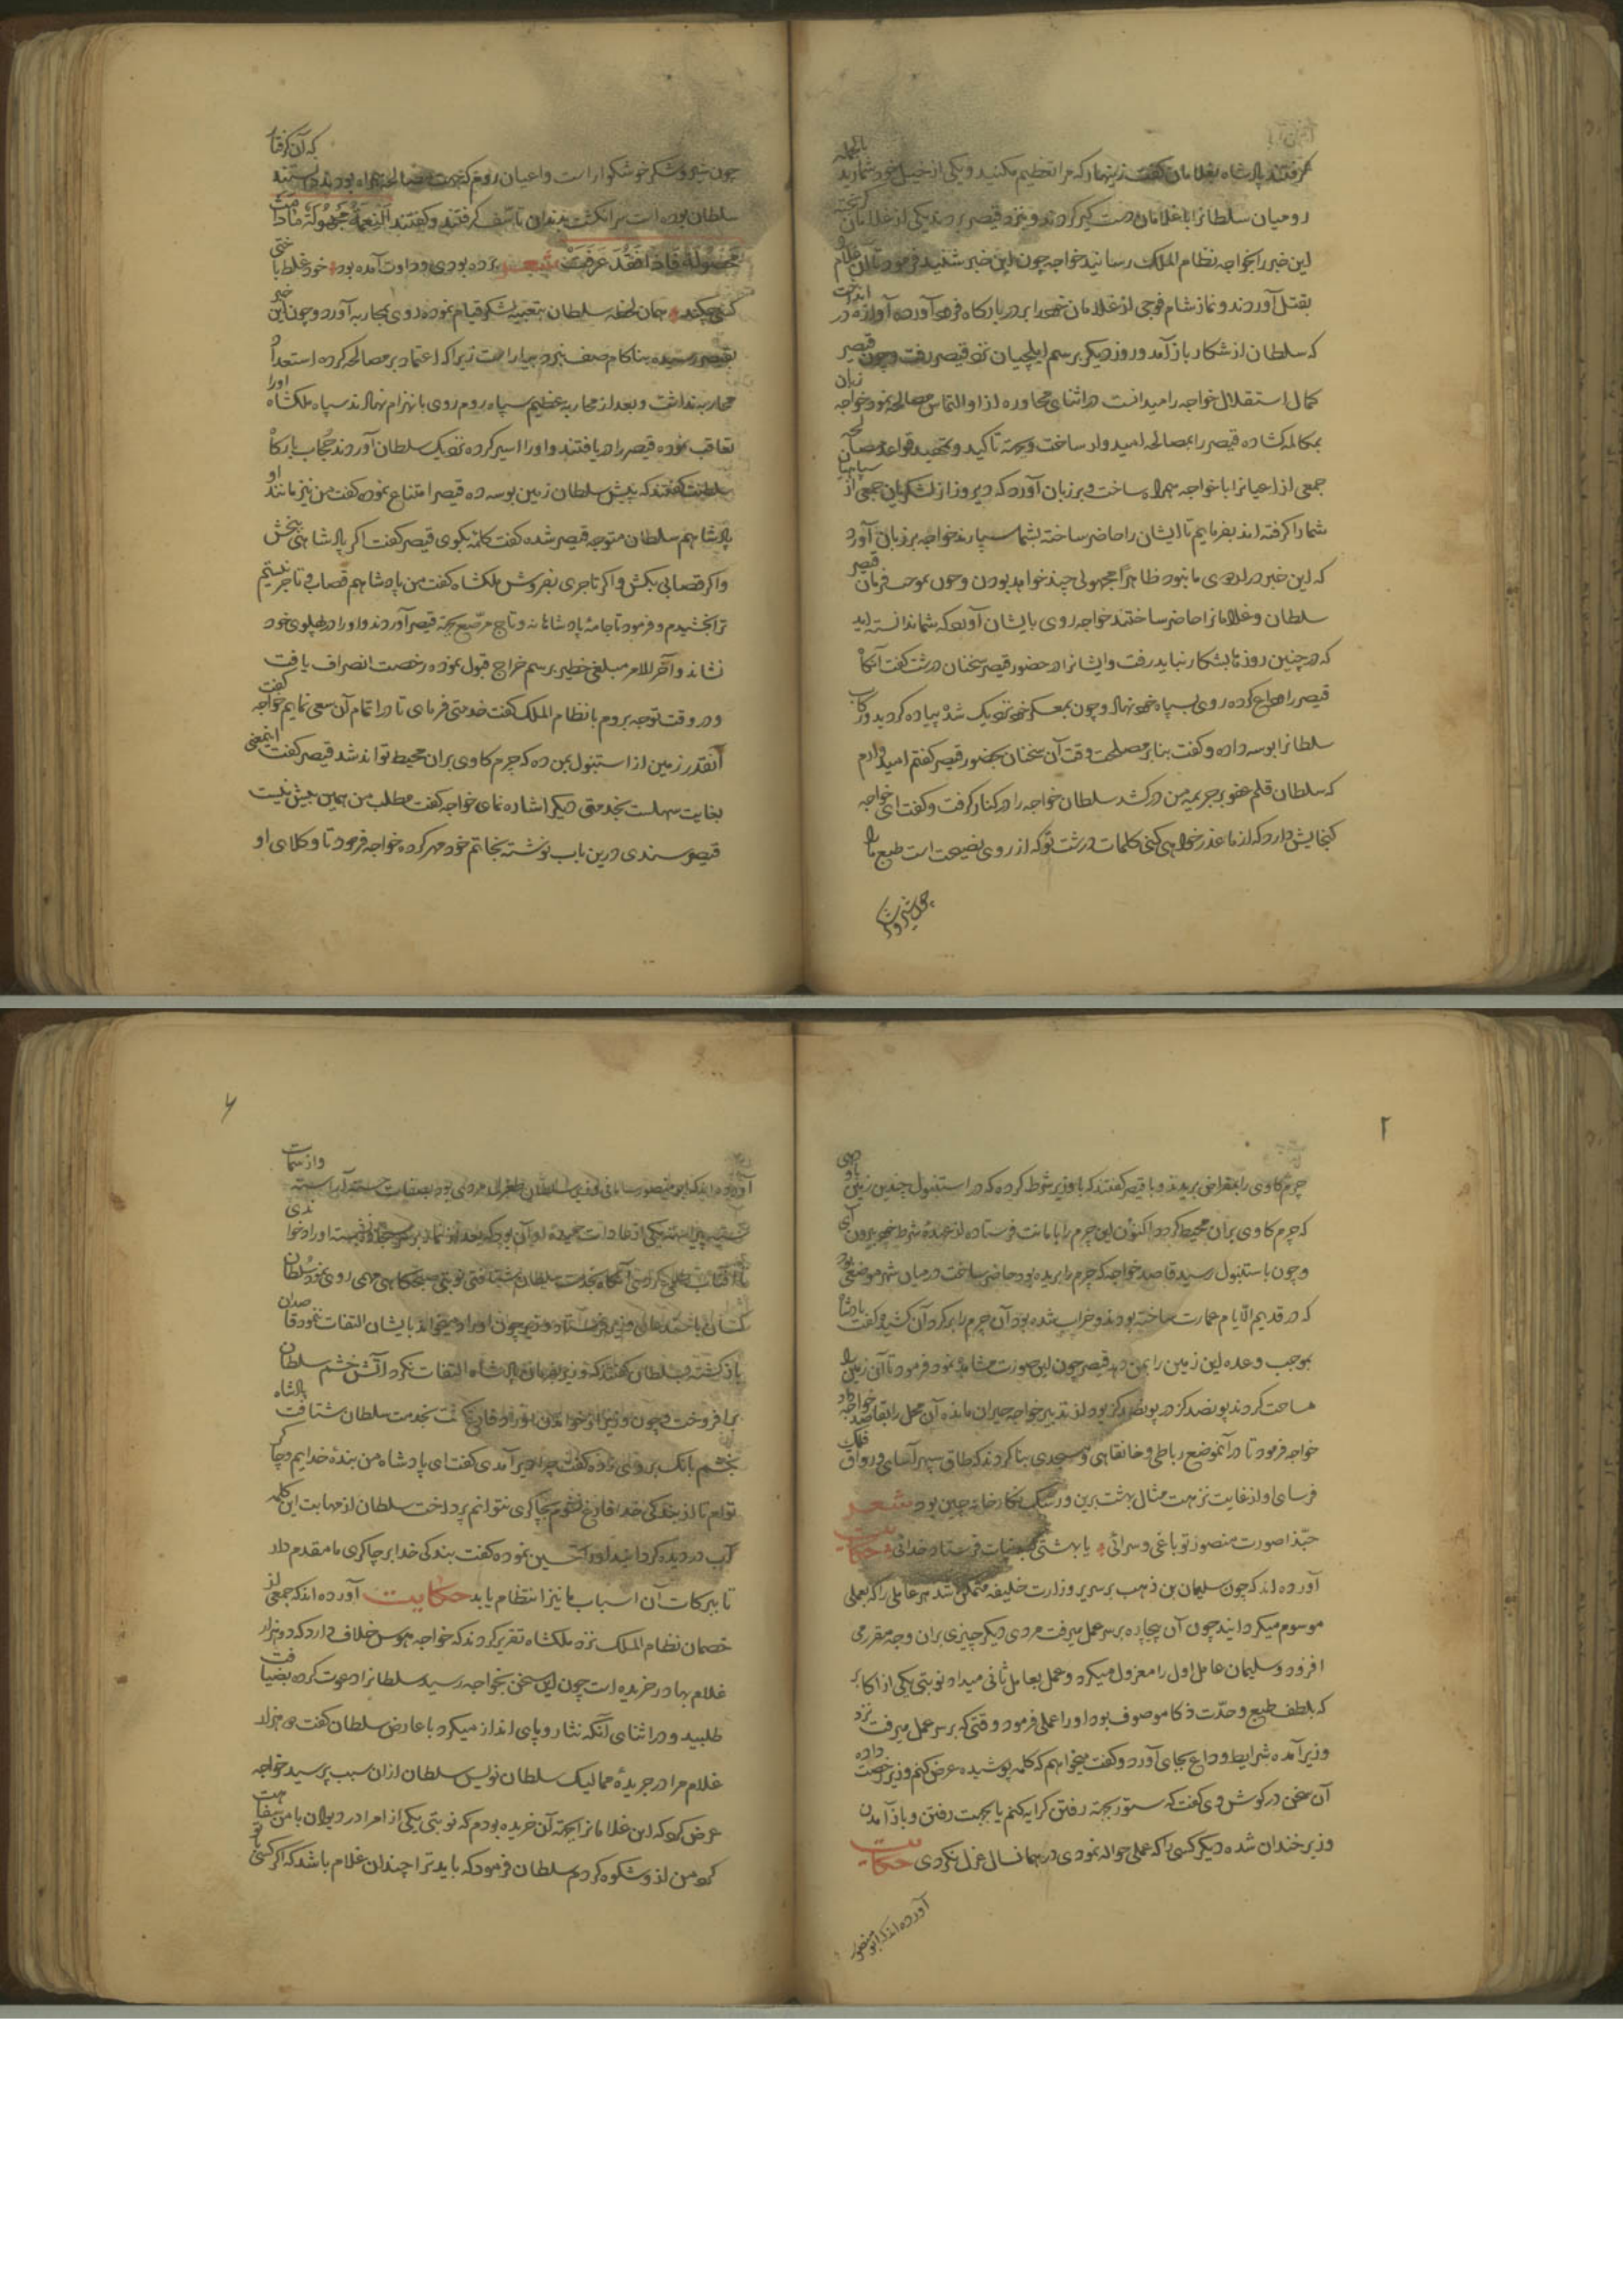 گرفتند پادشاه بغلامان گفت زینهار که مرا تعظیم مکنید و یکی از خیل خود شمارید بالجمله
رومیان سلطانرا با غلامان دست گیر کردند و نزد قیصر بردند یکی از غلامان گریخته
این خبر را بخواجه نظام الملک رسانید خواجه چون این خبر شنید فرمود تا آن غلام
بقتل آوردند و نماز شام فوجی از غلامان خود را بر در بارکاه فرود آورده آوازه در انداخت
که سلطان از شکار باز آمد و روز دیکر برسم ایلچیان نزد قیصر رفت و چون قیصر
کمال استقلال خواجه را میدانست در اثنای محاوره از او التماس مصالحه نمود خواجه زبان
بمکالمه کشاده قیصر را بمصالحه امیدوار ساخت و بجهة تاکید و تمهید قواعد مصالحه آن
جمعی از اعیانرا با خواجه همراه ساخت و بر زبان آورد که دیروز از لشکریان جمعی از سپاهیان
شما را کرفته اند بفرمایم تا ایشان را حاضر ساخته بشما سپارند خواجه بر زبان آورد
که این خبر در اردوی ما نبود ظاهرا مجهولی چند خواهد بودن و چون بموجب فرمان قیصر
سلطان و غلامانرا حاضر ساختند خواجه روی بایشان آورد که شما ندانسته اید
که در چنین روزها بشکار نباید رفت و ایشانرا در حضور قیصر سخنان درشت گفت آنکاه
قیصر را وداع کرده روی بسپاه خود نهاد و چون بمعسکر خود نزدیک شد پیاده کردید و رکاب
سلطانرا بوسه داده و گفت بنا بر مصلحت وقت آن سخنان بحضور قیصر کفتم امید دارم
که سلطان قلم عفو بر جریمه من در کشد سلطان خواجه را در کنار کرفت و گفت ای خواجه
کنجایش دارد که از ما عذر خواهی کنی کلمات درشت تو که از روی نصیحت است طبع ما را
چون شیر و شکر
چون شیر و شکر خوشکوار است و اعیان روم که جهت مصالحه همراه بودند دانستند که آن گرفتار
سلطان بوده است سر انکشت بدندان تاسّف کرفتند و کفتند النعمة مجهولة مادامت
محصولة فاذا فقد عرفت شعر برده بودی و داوت آمده بود خود غلط باختی
کسی چکند همان لحظه سلطان بتعبیه لشکر قیام نموده روی بمحاربه آورد و چون این خبر
بقیصر رسیده بناکام صف نبرد بیاراست زیرا که اعتماد بر مصالحه کرده استعداد
محاربه نداشت و بعد از محاربه عظیم سپاه روم روی بانهزام نهادند سپاه ملکشاه اورا
تعاقب نموده قیصر را دریافتند و او را اسیر کرده نزدیک سلطان آوردند حُجاب بارکاه
سلطنت گفتند که پیش سلطان زمین بوسه ده قیصر امتناع نموده گفت من نیز مانند او
پادشاهم سلطان متوجه قیصر شده گفت کلمه بکوی قیصر گفت اکر پادشاهی ببخش
و اکر قصابی بکش و اکر تاجری بفروش ملکشاه گفت من پادشاهم قصاب و تاجر نیستم
ترا بخشیدم و فرمود تا جامهٔ پادشاهانه و تاج مرصّع بجهة قیصر آوردند و او را در پهلوی خود
نشاند و آخر الامر مبلغی خطیر برسم خراج قبول نموده رخصت انصراف یافت
و در وقت توجه بروم با نظام الملک گفت خدمتی فرمای تا در اتمام آن سعی نمایم خواجه گفت
آنقدر زمین از استنبول بمن ده که چرم کاوی بران محیط تواند شد قیصر گفت اینمعنی
بغایت سهلست بخدمتی دیکر اشاره نمای خواجه گفت مطلب من همین بیش نیست
قیصر سندی درین باب نوشته بخاتم خود مهر کرده خواجه فرمود تا وکلای او
۲
چرم کاوی را بمقراض بریدند و با قیصر گفتند که با وزیر شرط کرده که در استنبول چندین زمین باو دهی
که چرم کاوی بران محیط گردد اکنون این چرم را بامانت فرستاده از عهدهٔ شرط خود بیرون آی
و چون باستنبول رسید قاصد خواجه که چرم را بریده بود حاضر ساخت در میان شهر موضعی بود
که در قدیم الایام عمارت ساخته بودند و خراب شده بود آن چرم را بر کرد آن کشید و گفت پادشاه
بموجب وعده این زمین را بمن دهد قیصر چون این صورت مشاهده نمود فرمود تا آن زمین را
مساحت کردند پونصد کز در پونصد کز بود از تدبیر خواجه حیران مانده آن محل را بقاصد خواجه داد
خواجه فرمود تا در آنموضع رباطی و خانقاهی و مسجدی بنا کردند که طاق سپهر آسای و رواق فلک
فرسای او از غایت نزهت مثال بهشت برین و رشک نکارخانه چین بود شعر
حبّذا صورت منصور تو باغی و سرائی یا بهشتی فرستاد خدائی حکایت
آورده اند که چون سلیمان بن ذهب بر سریر وزارت خلیفه متمکن شد هر عاملی را که بعملی
موسوم میکردانید چون آن بیچاره بر سر عمل میرفت مردی دیکر چیزی بران وجه مقرر می
افزود و سلیمان عامل اول را معزول میکرد و عمل بعامل ثانی میداد نوبتی یکی از اکابر
که بلطف طبع و حدّت ذکا موصوف بود او را عملی فرمود وقتی که بر سر عمل میرفت نزد
وزیر آمده شرایط وداع بجای آورد و گفت میخواهم که کلمه پوشیده عرض کنم وزیر رخصت داده
آن سخن در کوش وی گفت که ستور بجهة رفتن کرایه کنم یا بجهت رفتن و باز آمدن
وزیر خندان شده دیکر کسی را که عملی حواله نمودی در همانسال عزل نکردی حکایت
آورده اند که ابو منصور
۶
آورده اند که ابو منصور سامانی وزیر سلطان طغرل مردی بود بصفات آراسته و از سمات
یکی از عادات حمیدهٔ او آن بود که بعد از نماد بر سجاده نشسته اوراد خواندی
تا آفتاب طلوع کردی آنگاه بخدمت سلطان شتافتی نوبتی صبحکاهی مهمی روی نمود سلطان
کسان باحضار وزیر فرستاد وزیر چون اوراد میخواند بایشان التفات ننمود قاصدان
باز کشته و بسلطان گفتند که وزیر بفرمان پادشاه التفات نکرد آتش خشم سلطان
برافروخت و چون وزیر از خواندن اوراد فارغ گشت بخدمت سلطان شتافت پادشاه
بخشم بانک بر وی زده گفت چرا دیر آمدی گفت ای پادشاه من بندهٔ خدایم و چاکر
توام تا از بندگی خدا فارغ نشوم بچاکری نتوانم پرداخت سلطان از مهابت این کلمه
آب در دیده کردانید او را تحسین نموده گفت بندکی خدا بر چاکری ما مقدم دار
تا ببرکات آن اسباب ما نیز انتظام یابد حکایت آورده اند که جمعی از
خصمان نظام الملک نزد ملکشاه تقریر کردند که خواجه هوس خلاف دارد که دو هزار
غلام بهادر خریده است چون این سخن بخواجه رسید سلطانرا دعوت کرده بضیافت
طلبید و در اثنای آنکه نثار و پای انداز میکرد با عارض سلطان گفت دو هزار
غلام مرا در جریدهٔ ممالیک سلطان نویس سلطان ازان سبب پرسید خواجه
عرض کرد که این غلامانرا بجهة آن خریده بودم که نوبتی یکی از امرا در دیوان با من سفاهت
کرد من از و شکوه کردم سلطان فرمود که باید ترا چندان غلام باشد که اکر کسی با تو